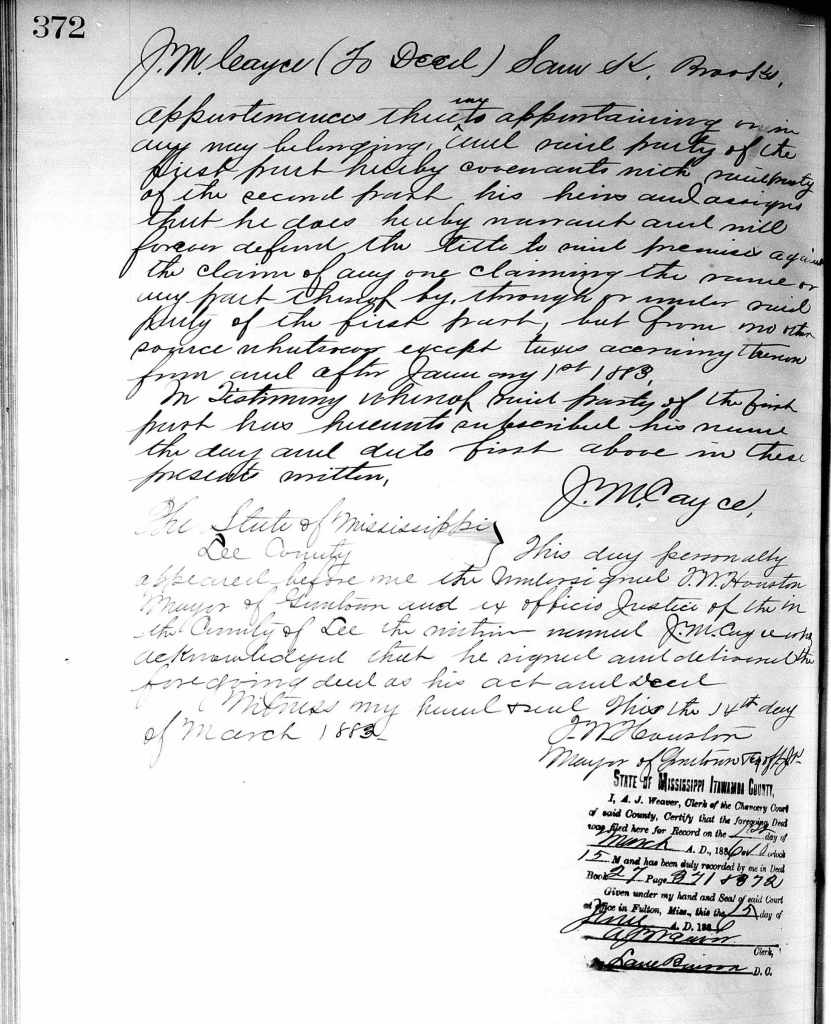 372
J. M. Cayce (To Deed) Sam K. Brooks,
appurtenances thereto appertaining or in
any way belonging. And said party of the
first part hereby covenants with said party
of the second part his heirs and assigns
that he does hereby warrant and will
forever defend the title to said premises against
the claim of any one claiming the same or
any part thereof by, through or under said
party of the first part, but from no other
source whatsoever except taxes accruing thereon
from and after January 1st 1883.
In Testimony whereof said party of the first
part has hereunto subscribed his name
the day and date first above in these
presents written.
J. M. Cayce.
The State of Mississippi
Lee County } This day personally
appeared before me the undersigned J. W. Houston
Mayor of Guntown and ex officio Justice of the in
the County of Lee the within named J. M. Cayce who
acknowledged that he signed and delivered the
foregoing deed as his act and deed
Witness my hand & seal this the 14th day
of March 1883
J. W. Houston
Mayor of Guntown
STATE OF MISSISSIPPI ITAWAMBA COUNTY,
I, A. J. Weaver, Clerk of the Chancery Court
of said County, Certify that the foregoing Deed
was filed here for Record on the day of
March A. D., 188 o'clock
M and has been duly recorded by me in Deed
Book 27 Page 371 & 372
Given under my hand and Seal of said Court
at office in Fulton, Miss., this the 15 day of
June A. D. 188
Clerk,
D. C.